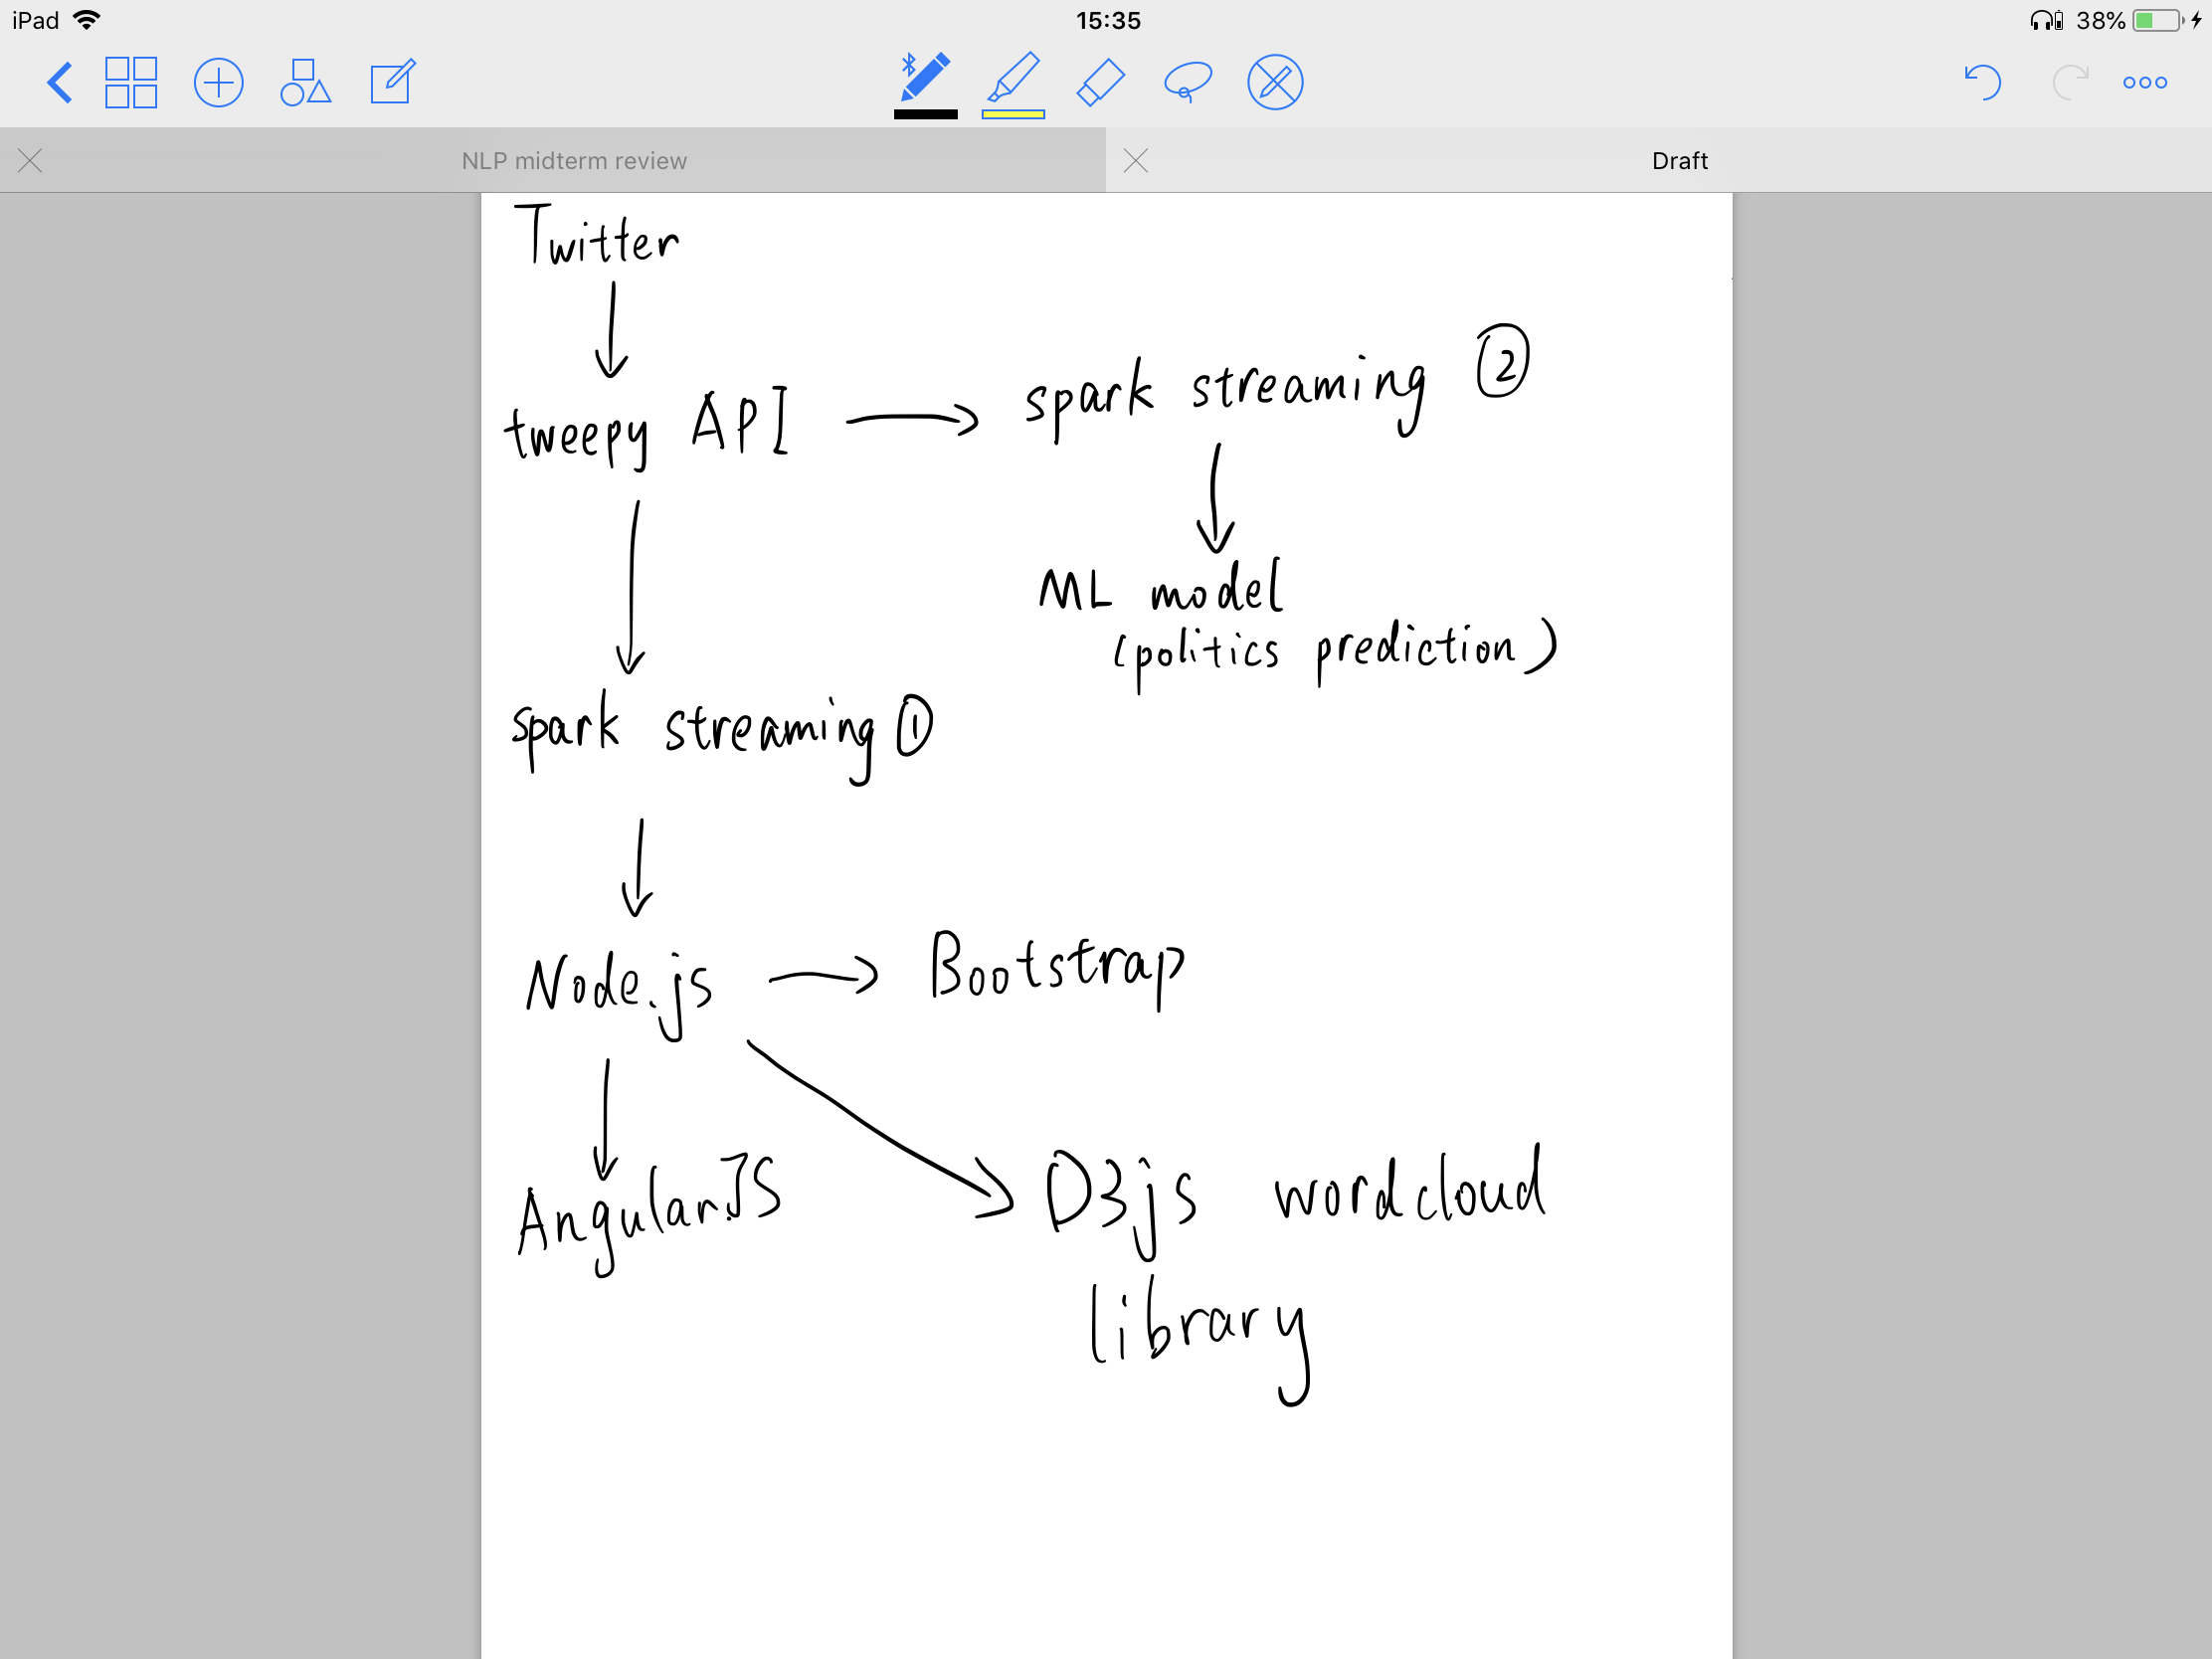 iPad
15:35
38%
NLP midterm review
Draft
Twitter
tweepy API
spark streaming ②
ML model
(politics prediction)
spark streaming ①
Node.js
Bootstrap
AngularJS
D3js wordcloud
library